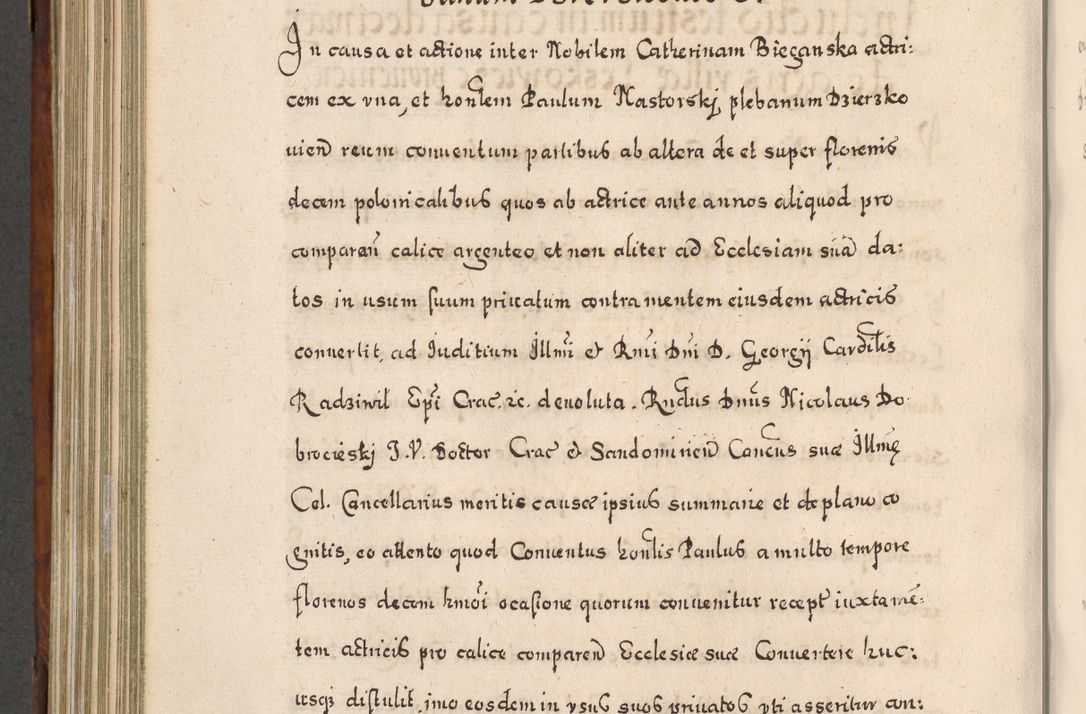 In causa et actione inter Nobilem Catherinam Bieganska actri:
cem ex vna, et honlem Paulum Nastorskj, plebanum Dzierzko
uien reum conuentum partibus ab altera de et super florenis
decem polonicalibus quos ab actrice ante annos aliquod pro
comparan calice argenteo et non aliter ad Ecclesiam sua da:
tos in usum suum priuatum contra mentem eiusdem actricis
conuertit, ad Iuditium Illmi et Rmi Dni D. Georgij Cardilis
Radziwil Epi Crac. &c. deuoluta. Rndus Dnus Nicolaus Do
brocieskj I.V. Doctor Crac et Sandomirien Cancus suæ Illmę
Cel. Cancellarius meritis causæ ipsius summarie et de plano co
gnitis, eo attento quod Conuentus honlis Paulus a multo tempore
florenos decem hmoi ocasione quorum conuenitur recept iuxta mē:
tem actricis pro calice comparen Ecclesiæ suæ Conuertere huc:
usq; distulit, imo eosdem in vsus suos priuatos vti asseritur con: